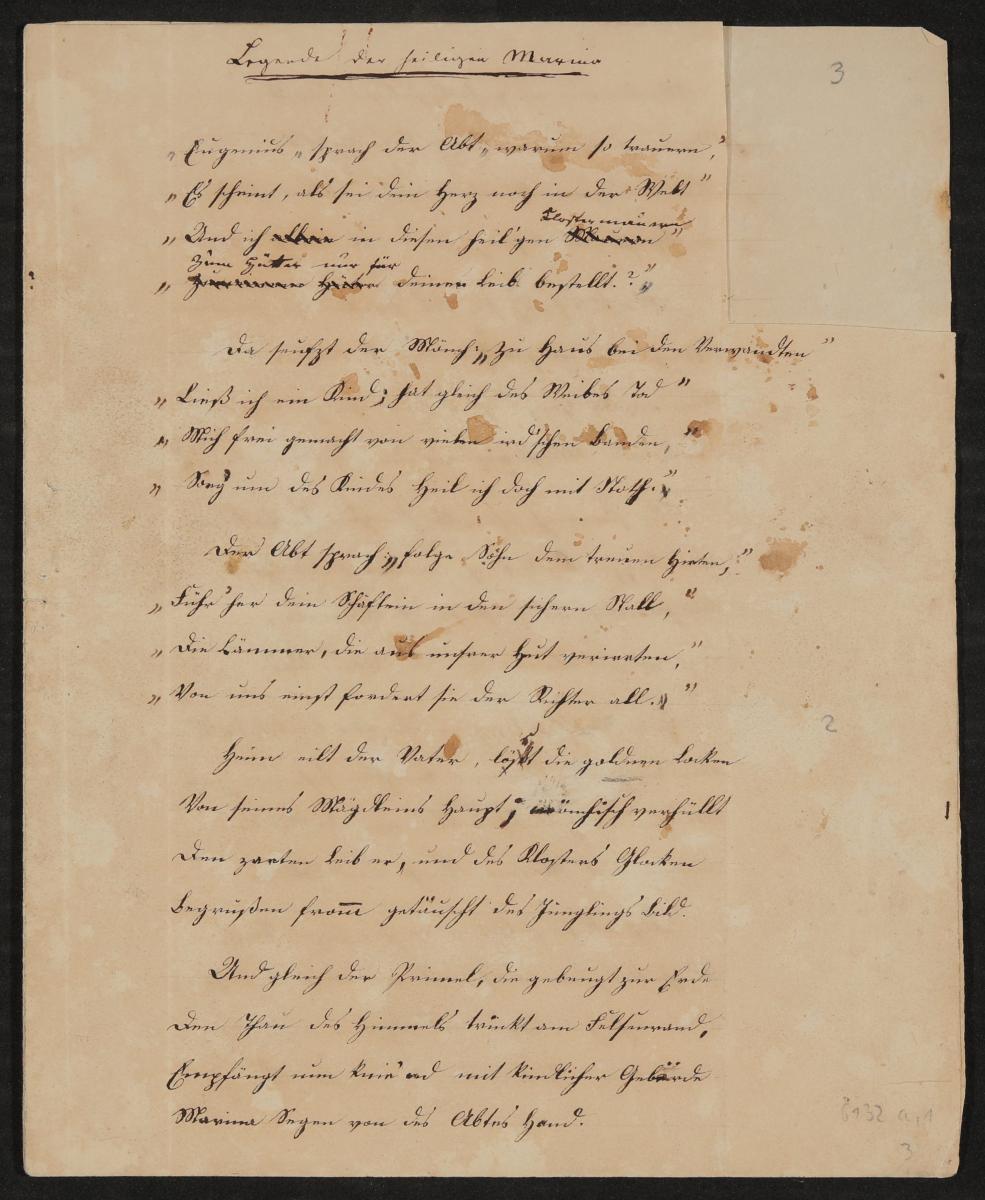 Legende der heiligen Marina
3
„Eugenius„ sprach der Abt „warum so trauern,"
„Es scheint, als sei dein Herz noch in der Welt"
Klostermauern
„Und ich allein in diesen heil'gen Mauern"
Zum Hüter nur für
„ Hüter deinen Leib bestellt.?"
Da seufzt der Mönch: „Zu Haus bei den Verwandten"
„Ließ ich ein Kind; hat gleich des Weibes Tod"
„Mich frei gemacht von vielen ird'schen Banden,"
„Sorg' um des Kindes Heil ich doch mit Noth."
Der Abt sprach: „folge Sohn dem treuen Hirten,"
„Führ' her dein Schäflein in den sichern Stall,"
„Die Lämmer, die aus unsrer Hut verirrten,"
„Von uns einst fordert sie der Richter all."
2
Heim eilt der Vater, löst die goldnen Locken
Von seines Mägdleins Haupt; mönchisch verhüllt
Den zarten Leib er, und des Klosters Glocken
Begrußen from̅ getäuscht des Jünglings Bild.
Und gleich der Primel, die gebeugt zur Erde
Den Thau des Himmels trinkt am Felsenrand,
Empfängt nun knie'nd mit kindlicher Geberde
Marina Segen von des Abtes Hand.
6132 a,1
3